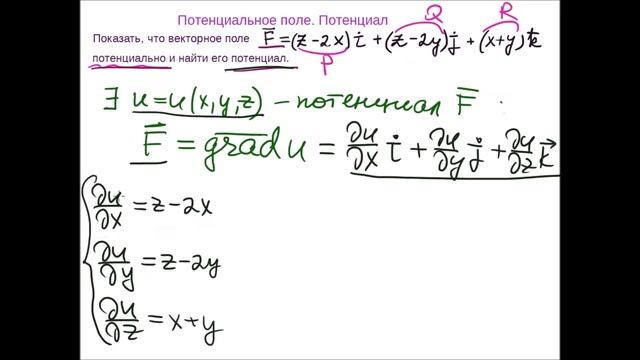 Потенциальное поле. Потенциал
Q R
Показать, что векторное поле F⃗=(z-2x)i⃗+(z-2y)j⃗+(x+y)k⃗
P
потенциально и найти его потенциал.
∃ u=u(x,y,z) – потенциал F⃗
F⃗ = grad u = ∂u/∂x i⃗ + ∂u/∂y j⃗ + ∂u/∂z k⃗
∂u/∂x = z-2x
∂u/∂y = z-2y
∂u/∂z = x+y